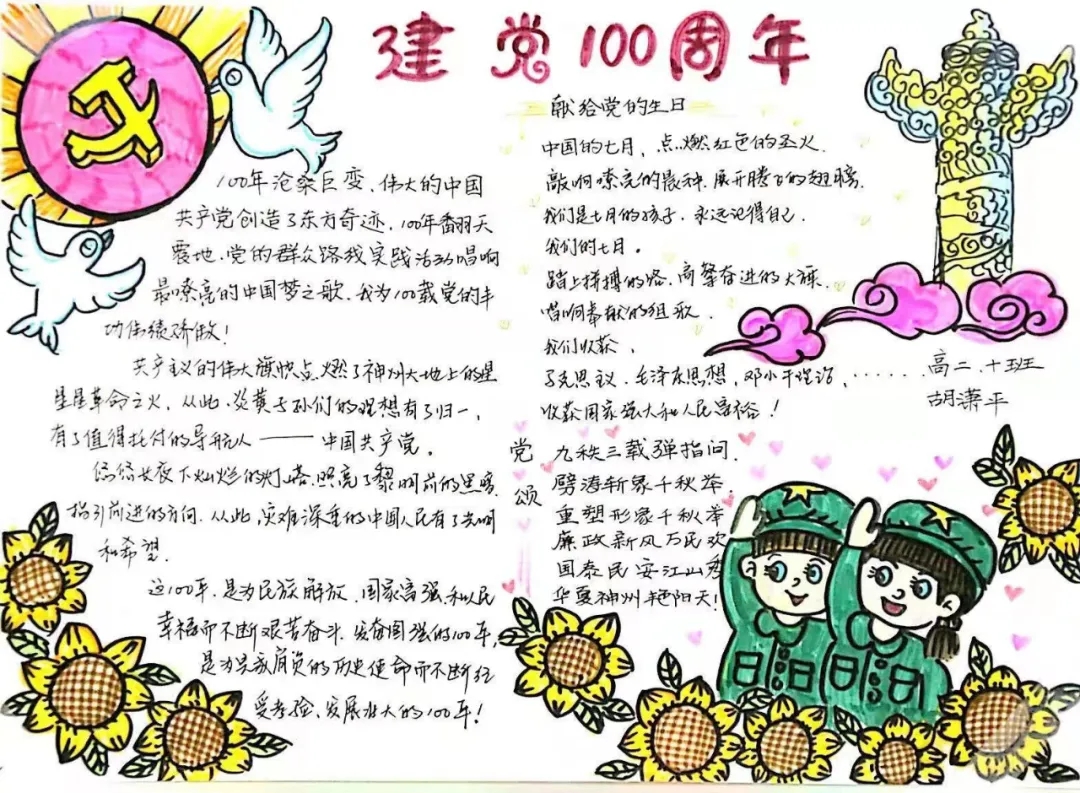 建党100周年
100年沧桑巨变、伟大的中国
共产党创造了东方奇迹、100年翻天
震地、党的群众路线实践活动唱响
最嘹亮的中国梦之歌、我为100载党的丰
功伟绩骄傲！
共产主义的伟大旗帜点燃了神州大地上的星
星星革命之火，从此，炎黄子孙们的理想有了归一，
有了值得托付的导航人——中国共产党。
悠悠长夜下灿烂的灯塔、照亮了黎明前的黑暗
指引前进的方向、从此、灾难深重的中国人民有了光明
和希望。
这100年、是为民族解放、国家富强、和人民
幸福而不断艰苦奋斗、发奋图强的100年，
是为其肩负的历史使命而不断经
受考验、发展壮大的100年！
献给党的生日
中国的七月，点燃红色的圣火
敲响嘹亮的晨钟、展开腾飞的翅膀、
我们是七月的孩子、永远记得自己、
我们的七月。
踏上拼搏的路、高擎奋进的大旗、
唱响奉献的组歌、
我们收获、
马克思主义、毛泽东思想，邓小平理论，······
收获国家强大和人民富裕！
高二、十班
胡潇平
党颂
九秩三载弹指间、
劈涛斩浪千秋举、
重塑形象千秋举
廉政新风万民欢
国泰民安江山秀
华夏神州艳阳天！